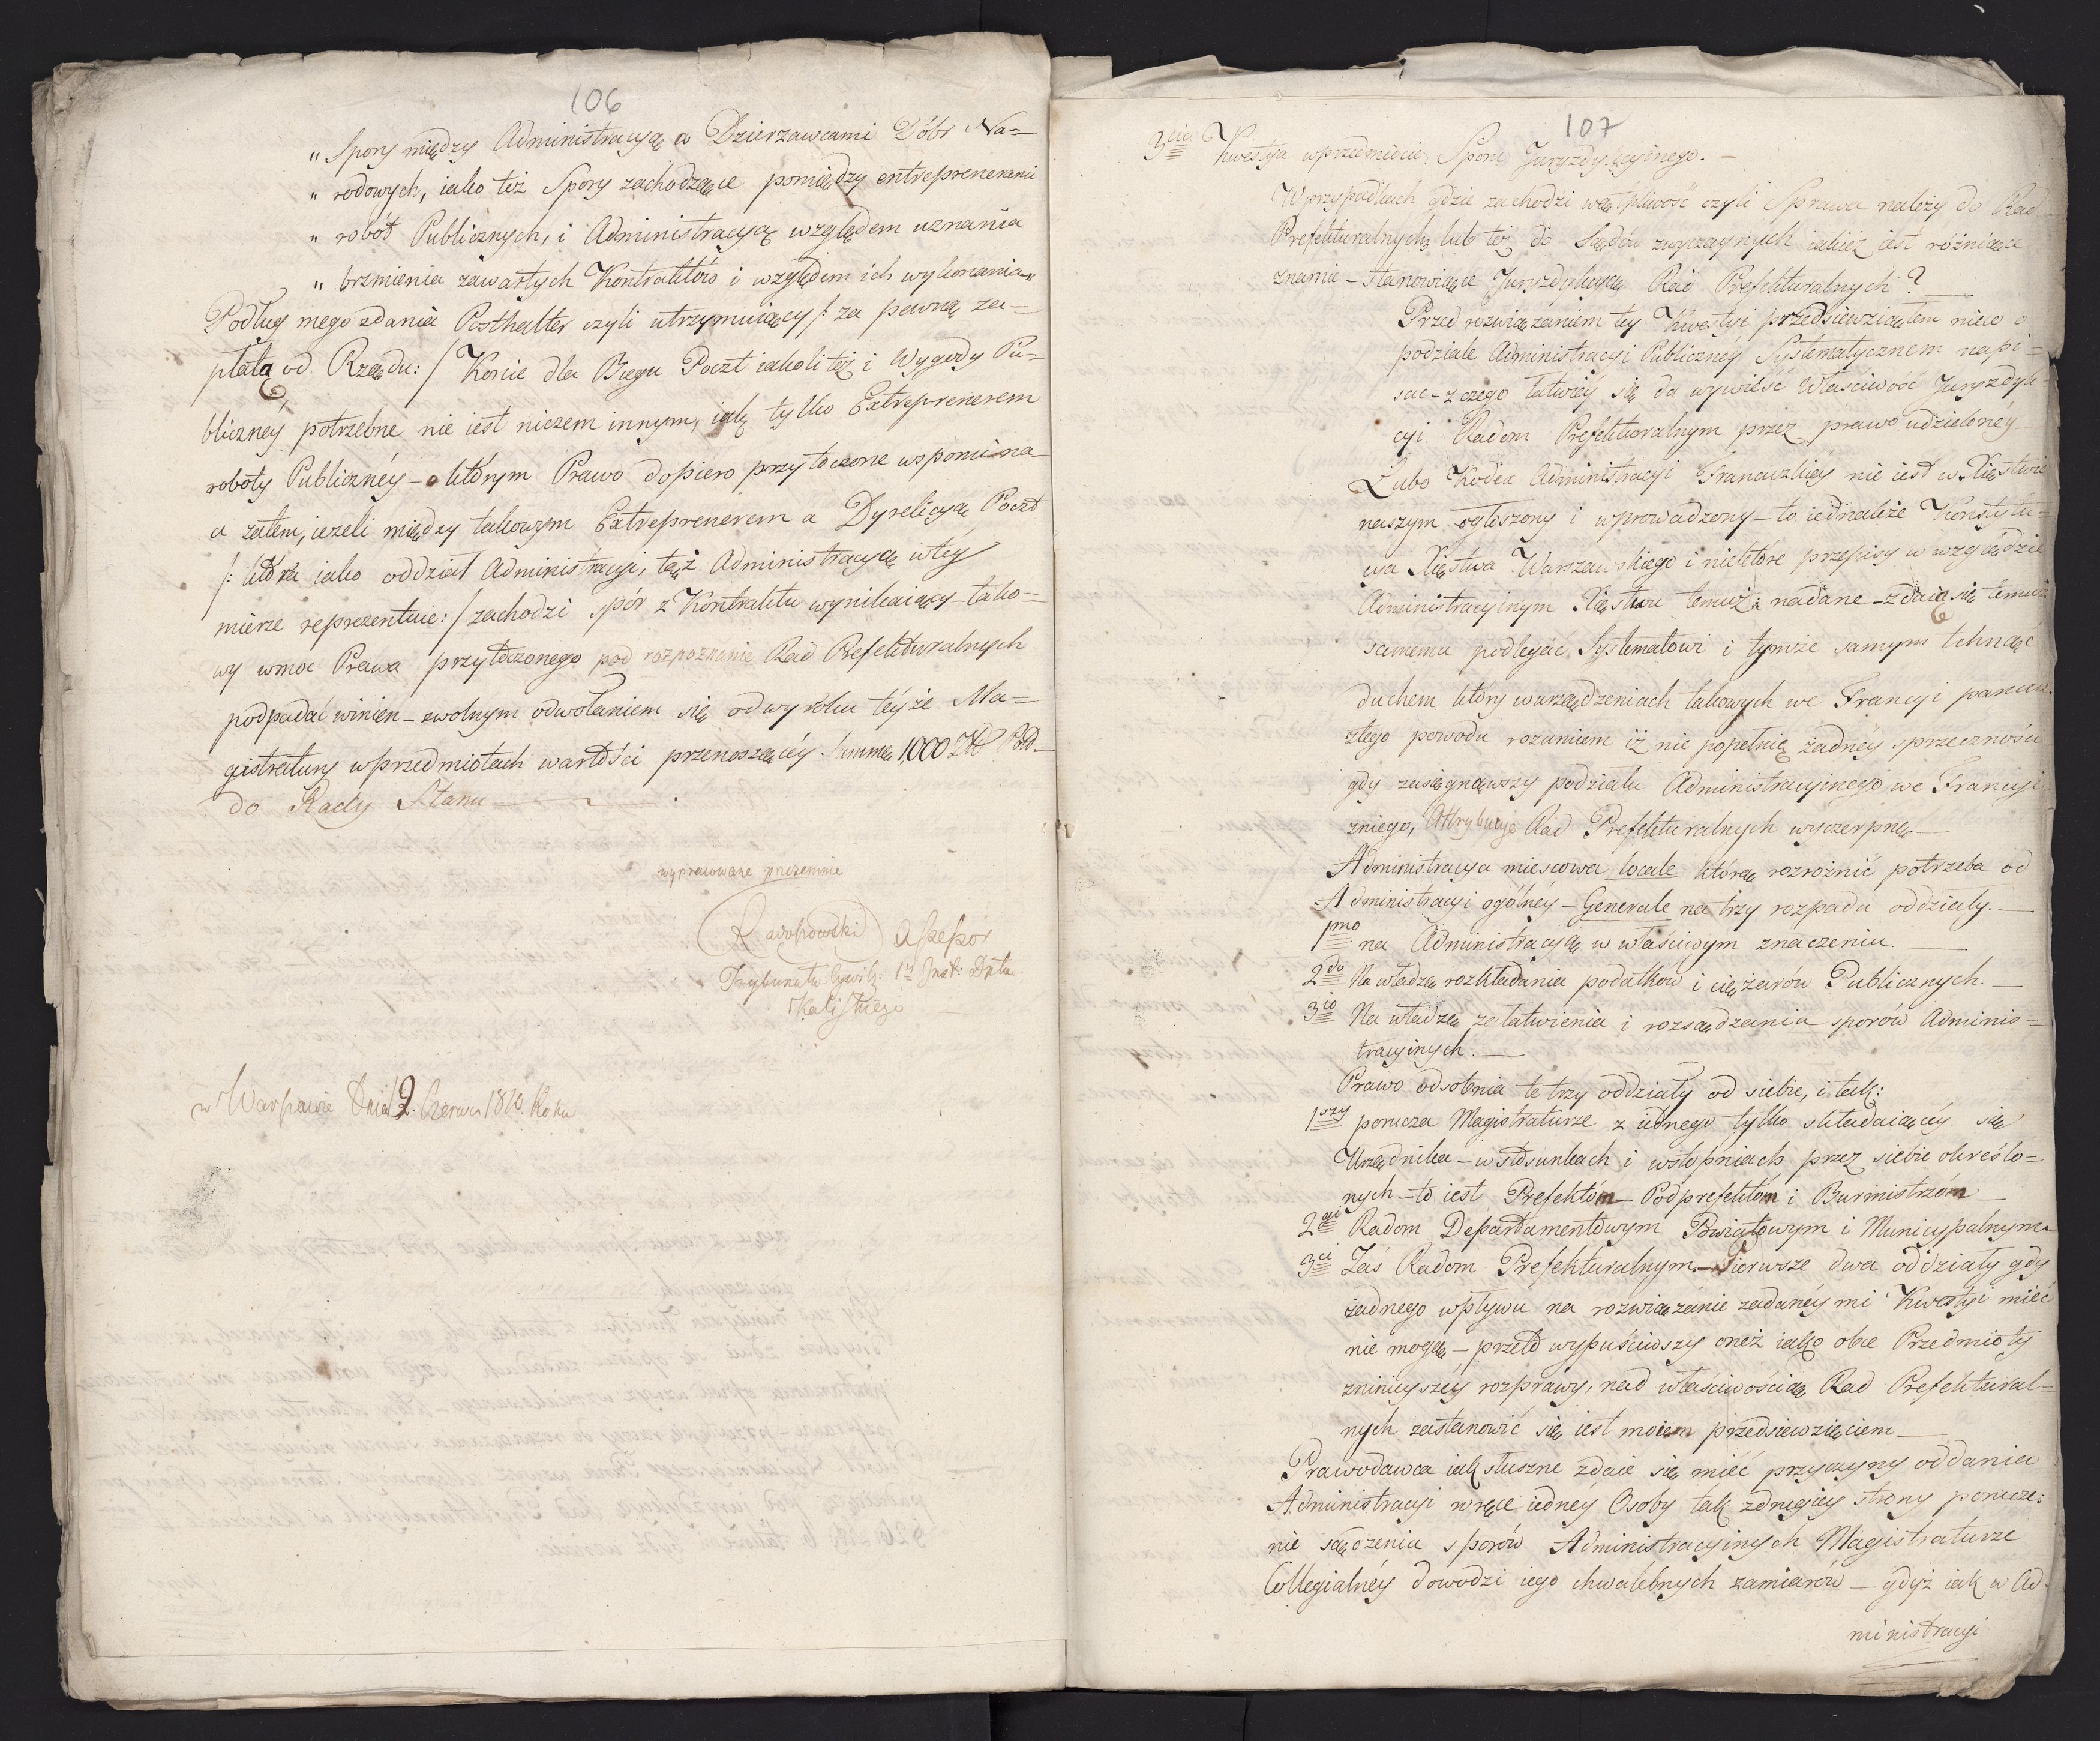 106
„ Spory między Administracyą a Dzierzawcami Dóbr Na=
„ rodowych, iako też Spory zachodzące pomiędzy entreprenerami
„ robót Publicznych, i Administracyą względem uznania
„ brzmienia zawartych Kontraktów i względem ich wykonania„
Podług mego zdania Posthalter czyli utrzymuiący /: za pewną za=
płatą od Rządu: / Konie dla Biegu Poczt iakoli też i Wygody Pu=
bliczney potrzebne nie iest niczem innym, iak tylko Extreprenerem
roboty Publiczney – o którym Prawo dopiero przytoczone wspomina
a zatem, ieżeli między takowym Extreprenerem a Dyrekcyą Poczt
/: która iako oddział Administracyi, też Administracyą w tey
mierze reprezentuie: / zachodzi spór z Kontraktu wynikaiący – tako=
wy w moc Prawa przytoczonego pod rozpoznanie Rad Prefekturalnych
podpadać winien – z wolnym odwołaniem się od wyroku teyże Ma=
gistratury w przedmiotach wartości przenoszącey summę 1,000 Zł Pol–
do Rady Stanu
wypracowane przezemnie
Assessor
Trybunału Cywil: 1 Inst: Dptu
Kaliskiego
w Warszawie Dnia 2. Czerwca 1810. Roku
107
3cia Kwestya w przedmiocie Sporu Juryzdykcyinego. –
W przypadkach gdzie zachodzi wątpliwość czyli Sprawa należy do Rad
Prefekturalnych lub też do Sądów zwyczaynych iakież iest różniące
znamie – stanowiące Juryzdykcyą Rad Prefekturalnych?
Przed rozwiązaniem tey Kwestyi przedsiewziąłem nieco o
podziale Administracyi Publiczney Systematycznem napi=
sać – z czego łatwiey się da wywieść Właściwość Juryzdyk=
cyi Radom Prefekturalnym przez prawo udzieloney –
Lubo Kodex Administracyi Francuzkiey nie iest w Xięstwie
naszym ogłoszony i wprowadzony – to iednakże Konstytu=
cya Xięstwa Warszawskiego i niektóre przepisy w względzie
Administracyinym Xięstwu temuż nadane – zdaią się temuż
samemu podlegać Systematowi i tymże samym tchnąć
duchem który w urządzeniach takowych we Francyi panuie.
z tego powodu rozumiem iż nie popełnię żadney sprzeczności
gdy zasięgnąwszy podziału Administracyinego we Francyi
z niego, Attrybucye Rad Prefekturalnych wyczerpnę –
Administracya mieyscowa locale którą rozróżnić potrzeba od
Administracyi ogólney – Generale na trzy rozpada oddziały. –
1mo na Administracyą w właściwym znaczeniu.
2do Na władzę rozkładania podatków i ciężarów Publicznych. –
3io Na władzę załatwienia i rozsądzania sporów Adminis=
tracyinych. –
Prawo odsobnia te trzy oddziały od siebie, i tak:
1szy porucza Magistraturze z iednego tylko składaiącey się
Urzędnika – w stosunkach i w stopniach przez siebie określo=
nych – to iest Prefektom – Podprefektom i Burmistrzom –
2gi Radom Departamentowym Powiatowym i Municypalnym.
3ci Zaś Radom Prefekturalnym. – Pierwsze dwa oddziały gdy
żadnego wpływu na rozwiązanie zadaney mi Kwestyi mieć
nie mogą – przeto wypuściwszy oneż iako obce Przedmioty
z ninieyszey rozprawy, nad właściwością Rad Prefektural=
nych zastanowić się iest moiem przedsiewzięciem –
Prawodawca iak słuszne zdaie się mieć przyczyny oddania
Administracyi w ręce iedney Osoby tak z drugiey strony porucze:
nie sądzenia sporów Administracyinych Magistraturze
Collegialney dowodzi iego chwalebnych zamiarów – gdyż iak w Ad=
ministracyi